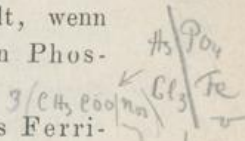 lt, wenn
n Phos-
s Ferri-
H₃ PO₄
Cl₃ Fe
3(CH₃ COO